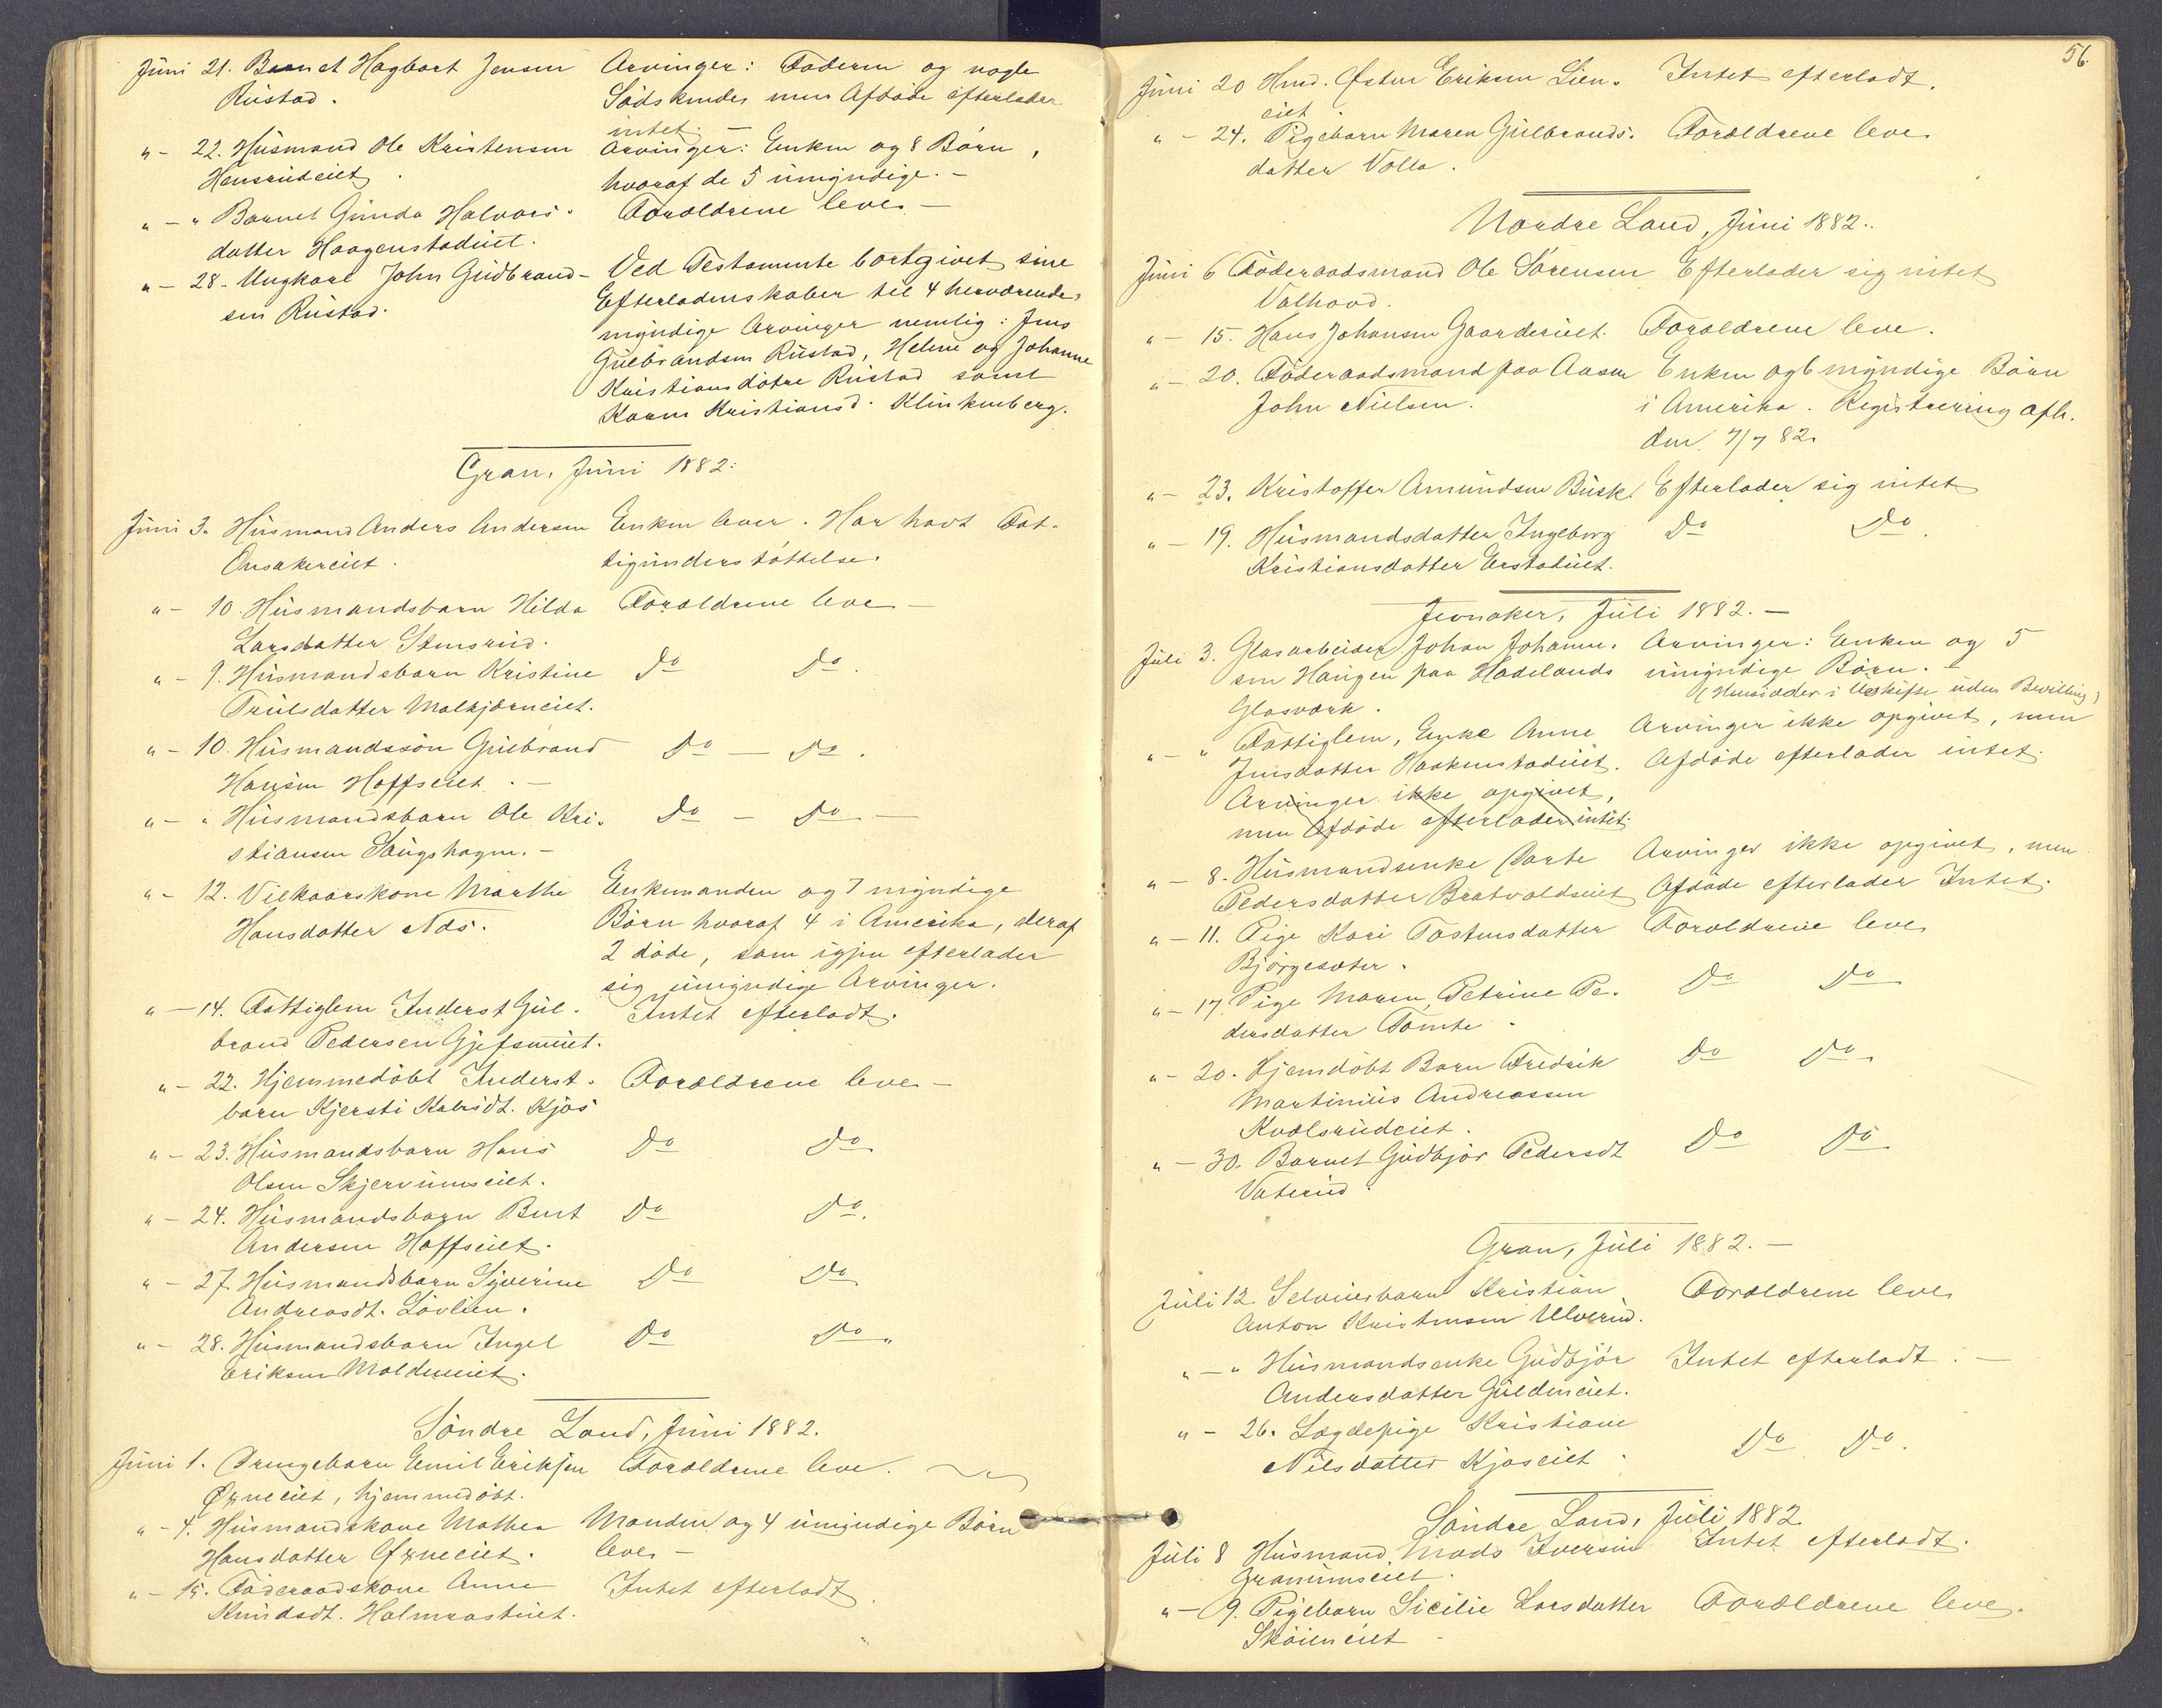 Juni 21. Barnet Hagbart Jensen Arvinger: Faderen og nogle
Rustad. Södskender men Afdöde efterlader
intet. —
" - 22. Husmand Ole Kristensen Arvinger: Enken og 8 Börn,
Hensrudeiet. hvoraf de 5 umyndige. —
" - " Barnet Gunda Halvors- Forældrene leve. —
datter Haagenstadeiet.
" - 28. Ungkarl John Gudbrand- Ved Testamente bortgivet sine
sen Rustad. Efterladenskaber til 4 herværende
myndige Arvinger nemlig: Jens
Gulbrandsen Rustad, Helene og Johanne
Kristiansdötre Rustad samt
Karen Kristiansd. Klinkenberg.
Gran, Juni 1882:
Juni 3. Husmand Anders Andersen Enken lever. Har havt Fat-
Onsakereiet. tigunderstöttelse.
" - 10. Husmandsbarn Hilda Forældrene leve —
Larsdatter Stensrud.
" - 9. Husmandsbarn Kristine Do Do.
Trulsdatter Malkjærneiet.
" - 10. Husmandssön Gulbrand Do — Do.
Hansen Hoffseiet. —
" - " Husmandsbarn Ole Kri- Do — Do —
stiansen Saugshagen. —
" - 12. Vilkaarskone Marthe Enkemanden og 7 myndige
Hansdatter Næs. Börn hvoraf 4 i Amerika, deraf
2 döde, som igjen efterlader
sig umyndige Arvinger.
" - 14. Fattiglem Inderst Gul- Intet efterladt.
brand Pedersen Gjefseneiet.
" - 22. Hjemmedöbt Inderst- Forældrene leve —
barn Kjersti Kalrsdt. Kjos
" - 23. Husmandsbarn Hans Do Do
Olsen Skjervumseiet.
" - 24. Husmandsbarn Bernt Do Do.
Andersen Hoffseiet.
" - 27. Husmandsbarn Syverine Do Do
Andreasdt. Lövlien.
" - 28. Husmandsbarn Ingel Do Do "
Eriksen Moldeneiet.
Söndre Land, Juni 1882.
Juni 1. Drengebarn Emil Eriksen Forældrene leve.
Øxneeiet, hjemmedöbt.
" - 4. Husmandskone Mathea Manden og 4 umyndige Börn
Hansdatter Øxneeiet. leve. —
" - 15. Föderaadskone Anne Intet efterladt.
Knudsdt. Halmrasteiet.
56.
Juni 20 Hmd. Østen Eriksen Lien- Intet efterladt.
eiet.
" - 24. Pigebarn Maren Gulbrands- Forældrene leve
datter Volla.
Nordre Land, Juni 1882.
Juni 6 Föderaadsmand Ole Sörensen Efterlader sig intet
Valhovd.
" - 15. Hans Johansen Gaardereiet. Forældrene leve.
" - 20. Föderaadsmand paa Aasen Enken og 6 myndige Börn
John Nielsen. i Amerika. Registrering afh.
den 7/7 82.
" - 23. Kristoffer Amundsen Busk. Efterlader sig intet
" - 19. Husmandsdatter Ingeborg Do Do.
Kristiansdatter Erstadeiet.
Jevnaker, Juli 1882. —
Juli 3. Glasarbeider Johan Johanne- Arvinger: Enken og 5
sen Haugen paa Hadelands umyndige Börn. —
Glasværk. (Hensidder i Uskifte uden Bevilling)
" - " Fattiglem, Enke Anne Arvinger ikke opgivet, men
Jensdatter Haakenstadeiet. Afdöde efterlader intet.
Arvinger ikke opgivet,
men Afdöde efterlader intet.
" - 8. Husmandsenke Dorte Arvinger ikke opgivet, men
Pedersdatter Bratvaldseiet Afdöde efterlader Intet.
" - 11. Pige Kari Tostensdatter Forældrene leve
Björgesæter.
" - 17. Pige Maren Petrine Pe- Do Do
dersdatter Tömte.
" - 20. Hjemdöbt Barn Fredrik Do Do
Martinius Andreassen
Kvælsrudeiet.
" - 30. Barnet Gudbjör Pedersdt Do Do
Vaterud.
Gran, Juli 1882. —
Juli 12. Selveierbarn Kristian Forældrene leve
Anton Kristensen Ulverud.
" - " Husmandsenke Gudbjör Intet efterladt. —
Andersdatter Guldeneiet.
" - 26. Lægdepige Kristiane
Nilsdatter Kjoseiet. Do Do.
Söndre Land, Juli 1882
Juli 8 Husmand Mads Iversen Intet efterladt.
Granumseiet.
" - 9. Pigebarn Sicilie Larsdatter Forældrene leve.
Sköieneiet